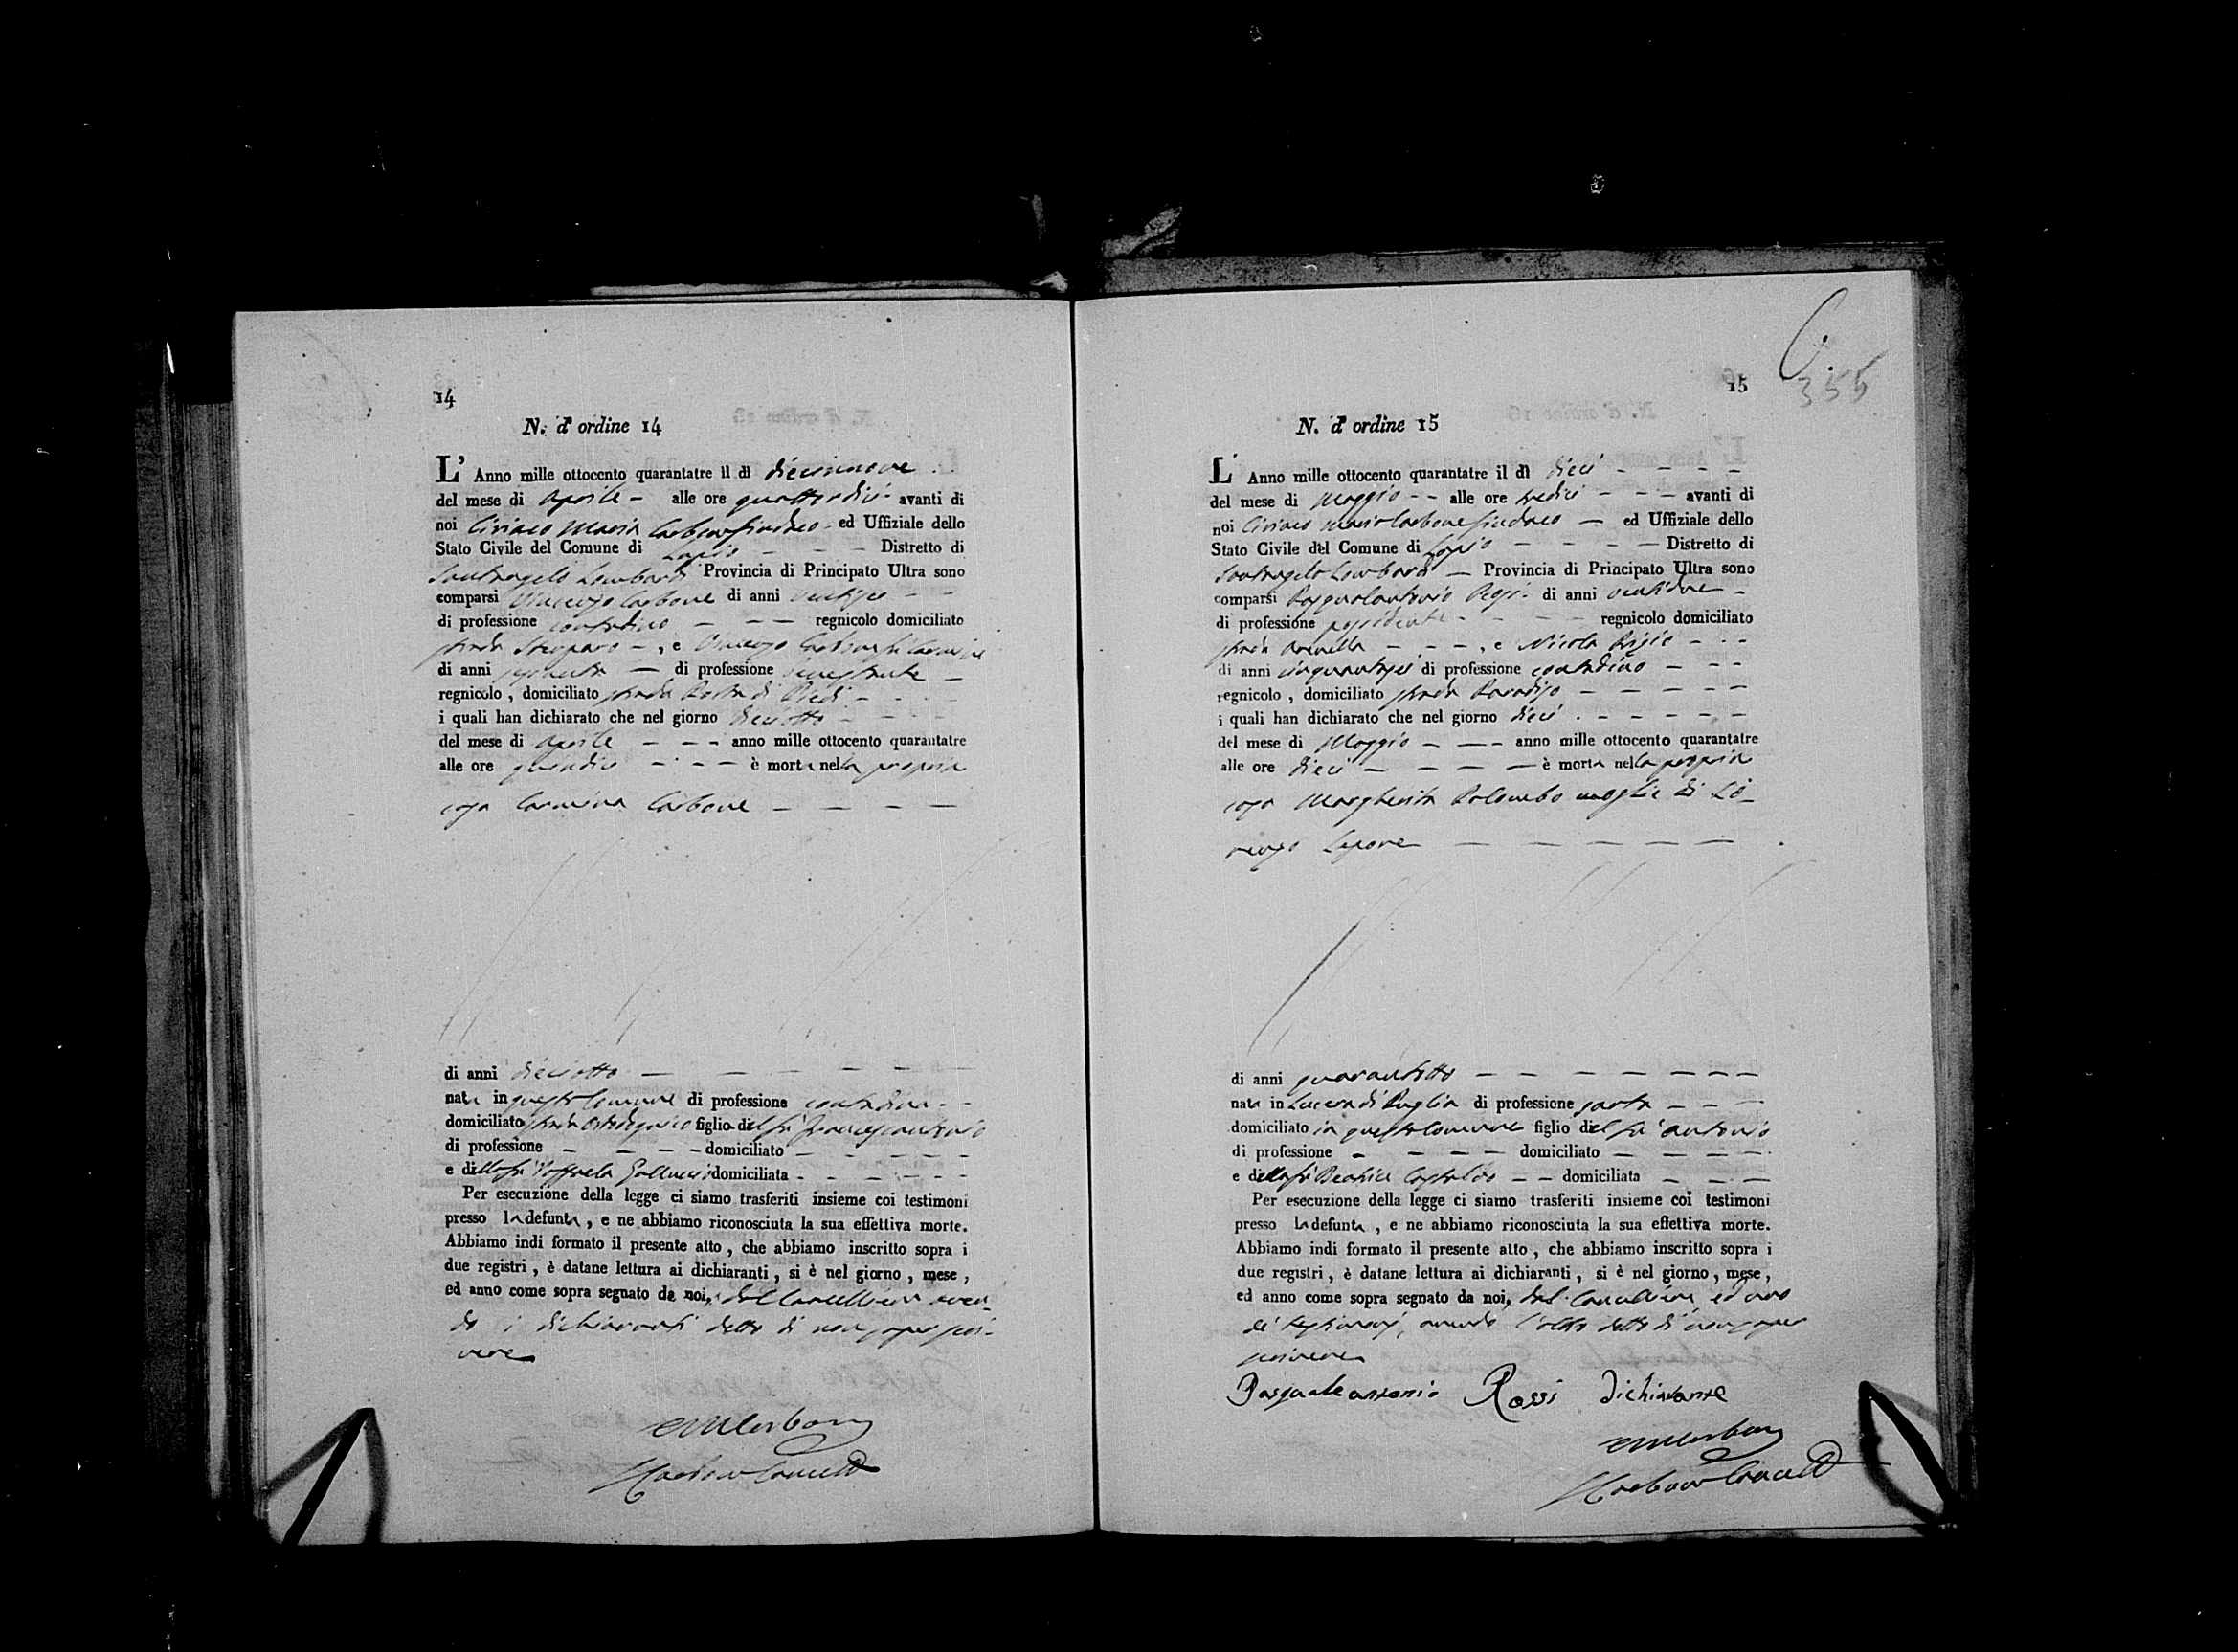 14
N. d' ordine 14
L' Anno mille ottocento quarantatre il dì diecinnove
del mese di Aprile – alle ore quattordici – avanti di
noi Ciriaco Maria Carbone Sindaco – ed Uffiziale dello
Stato Civile del Comune di Lapio – – – Distretto di
Santangelo Lombardi Provincia di Principato Ultra sono
comparsi Vincenzo Carbone di anni ventisei – –
di professione contadino – – – regnicolo domiciliato
strada –, e Vincenzo Carbone fu Carmine
di anni sessanta – di professione –
regnicolo, domiciliato strada Piedi – –
i quali han dichiarato che nel giorno dieciotto – – –
del mese di Aprile – – – anno mille ottocento quarantatre
alle ore quindici – – – è morta nella propria
casa Carmina Carbone – – – –
di anni dieciotto – – – – – –
nata in questo Comune di professione contadina – –
domiciliato strada figlia del fu Francescantonio
di professione – – – – domiciliato – – – – –
e della fu Raffaela Gallucci domiciliata – – – – – –
Per esecuzione della legge ci siamo trasferiti insieme coi testimoni
presso la defunta, e ne abbiamo riconosciuta la sua effettiva morte.
Abbiamo indi formato il presente atto, che abbiamo inscritto sopra i
due registri, è datane lettura ai dichiaranti, si è nel giorno, mese,
ed anno come sopra segnato da noi, dal Cancelliere aven-
do i dichiaranti detto di non saper scri-
vere
CMCarbone
Carbone Cancell
15
355
N. d' ordine 15
L' Anno mille ottocento quarantatre il dì dieci – – – –
del mese di Maggio – – alle ore tredici – – – avanti di
noi Ciriaco Maria Carbone Sindaco – ed Uffiziale dello
Stato Civile del Comune di Lapio – – – – Distretto di
Santangelo Lombardi – Provincia di Principato Ultra sono
comparsi Pasqualantonio Rossi di anni ventidue –
di professione possidente – – – – regnicolo domiciliato
strada – – –, e Nicola – – –
di anni cinquantasei di professione contadino – – –
regnicolo, domiciliato strada Paradiso – – – – –
i quali han dichiarato che nel giorno dieci – – – – –
del mese di Maggio – – – anno mille ottocento quarantatre
alle ore dieci – – – – è morta nella propria
casa Margherita Palombo moglie di Lo-
renzo Lepore – – – – – –
di anni quarantotto – – – – – – –
nata in Lucera di Puglia di professione sarta – – –
domiciliato in questo Comune figlio del fu Antonio
di professione – – – – domiciliato – – – – –
e della fu Beatrice Castaldo – – domiciliata – – –
Per esecuzione della legge ci siamo trasferiti insieme coi testimoni
presso la defunta, e ne abbiamo riconosciuta la sua effettiva morte.
Abbiamo indi formato il presente atto, che abbiamo inscritto sopra i
due registri, è datane lettura ai dichiaranti, si è nel giorno, mese,
ed anno come sopra segnato da noi, dal Cancelliere, ed uno
de' testimonj, avendo l'altro detto di non saper
scrivere
Pasquale antonio Rossi dichiarante
CMCarbone
Carbone Cancell